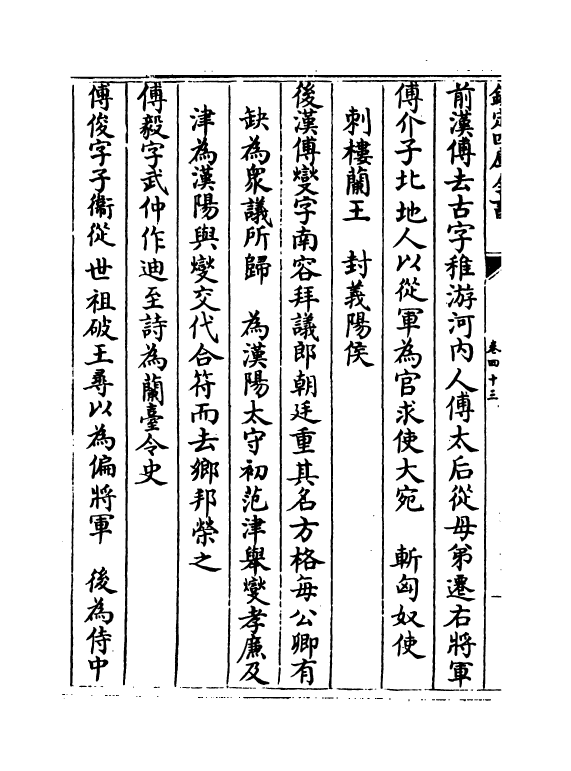 欽定四庫全書
卷四十三
前漢傅去古字稚游河内人傅太后從母弟遷右將軍
傅介子北地人以從軍為官求使大宛　斬匈奴使
刺樓蘭王　封義陽侯
後漢傅燮字南容拜議郎朝廷重其名方格每公卿有
缺為衆議所歸　為漢陽太守初范津舉燮孝廉及
津為漢陽與燮交代合符而去鄉邦榮之
傅毅字武仲作迪至詩為蘭臺令史
傅俊字子衞從世祖破王尋以為偏將軍　後為侍中